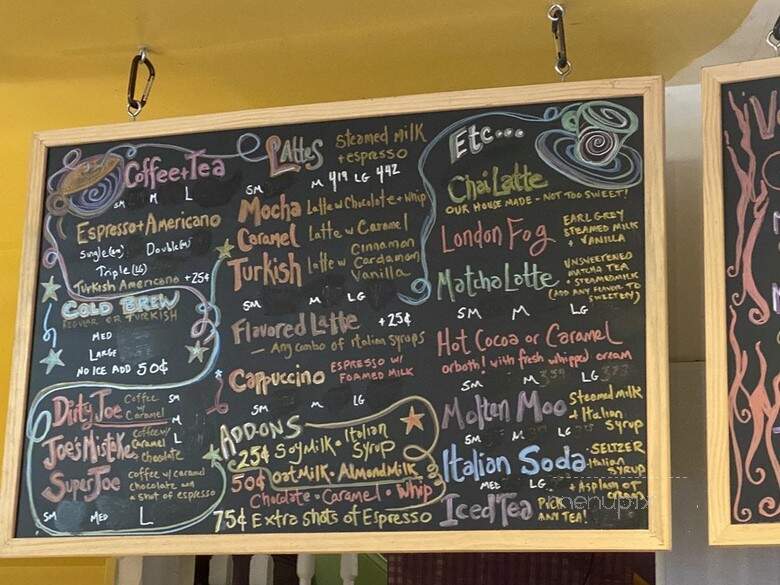 Coffee + Tea
SM M L
Espresso + Americano
Single (sm) Double (m)
Triple (LG)
Turkish Americano +25¢
COLD BREW
REGULAR OR TURKISH
MED
LARGE
NO ICE ADD 50¢
Dirty Joe Coffee w/ Caramel SM
Joe's Mistake coffee w/ Caramel + chocolate M
Super Joe coffee w/ caramel
chocolate and
a shot of espresso
SM MED L
Lattes Steamed milk
+ espresso
SM M 419 LG 442
Mocha Latte w Chocolate + Whip
Caramel Latte w Caramel
Turkish Latte w Cinnamon
Cardamon
Vanilla
SM M LG
Flavored Latte +25¢
— Any combo of italian syrups
Cappuccino ESPRESSO W/
FOAMED MILK
SM M LG
ADD-ONS
25¢ Soy Milk • Italian
Syrup
50¢ oat Milk • Almond Milk
Chocolate • Caramel • Whip
75¢ Extra shots of Espresso
Etc...
Chai Latte
OUR HOUSE MADE - NOT TOO SWEET!
London Fog EARL GREY
STEAMED MILK
+ VANILLA
Matcha Latte UNSWEETENED
MATCHA TEA
+ STEAMED MILK
(ADD ANY FLAVOR TO
SWEETEN)
SM M LG
Hot Cocoa or Caramel
or both! with fresh whipped cream
SM M LG
Molten Moo Steamed milk
+ Italian
Syrup
SM M LG
Italian Soda SELTZER
+ Italian
SYRUP
MED LG + A splash of
cream
Iced Tea PICK
ANY TEA!
menupix